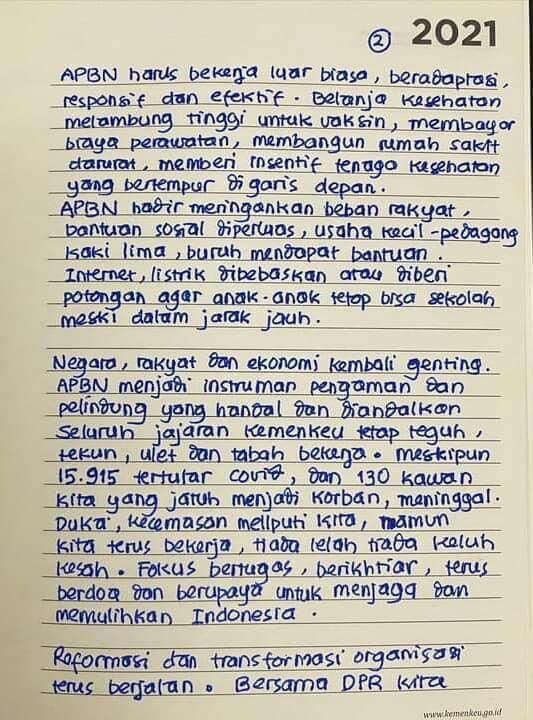 ② 2021
APBN harus bekerja luar biasa, beradaptasi,
responsif dan efektif. Belanja kesehatan
melambung tinggi untuk vaksin, membayar
biaya perawatan, membangun rumah sakit
darurat, memberi insentif tenaga kesehatan
yang bertempur di garis depan.
APBN hadir meringankan beban rakyat,
bantuan sosial diperluas, usaha kecil-pedagang
kaki lima, buruh mendapat bantuan.
Internet, listrik dibebaskan atau diberi
potongan agar anak-anak tetap bisa sekolah
meski dalam jarak jauh.
Negara, rakyat dan ekonomi kembali genting.
APBN menjadi instruman pengaman dan
pelindung yang handal dan diandalkan
Seluruh jajaran Kemenkeu tetap teguh,
tekun, ulet dan tabah bekerja. meskipun
15.915 tertular covid, dan 130 kawan
kita yang jatuh menjadi korban, meninggal.
Duka, kecemasan meliputi kita, namun
kita terus bekerja, tiada lelah tiada keluh
kesah. Fokus bertugas, berikhtiar, terus
berdoa dan berupaya untuk menjaga dan
memulihkan Indonesia.
Reformasi dan transformasi organisasi
terus berjalan. Bersama DPR kita
www.kemenkeu.go.id